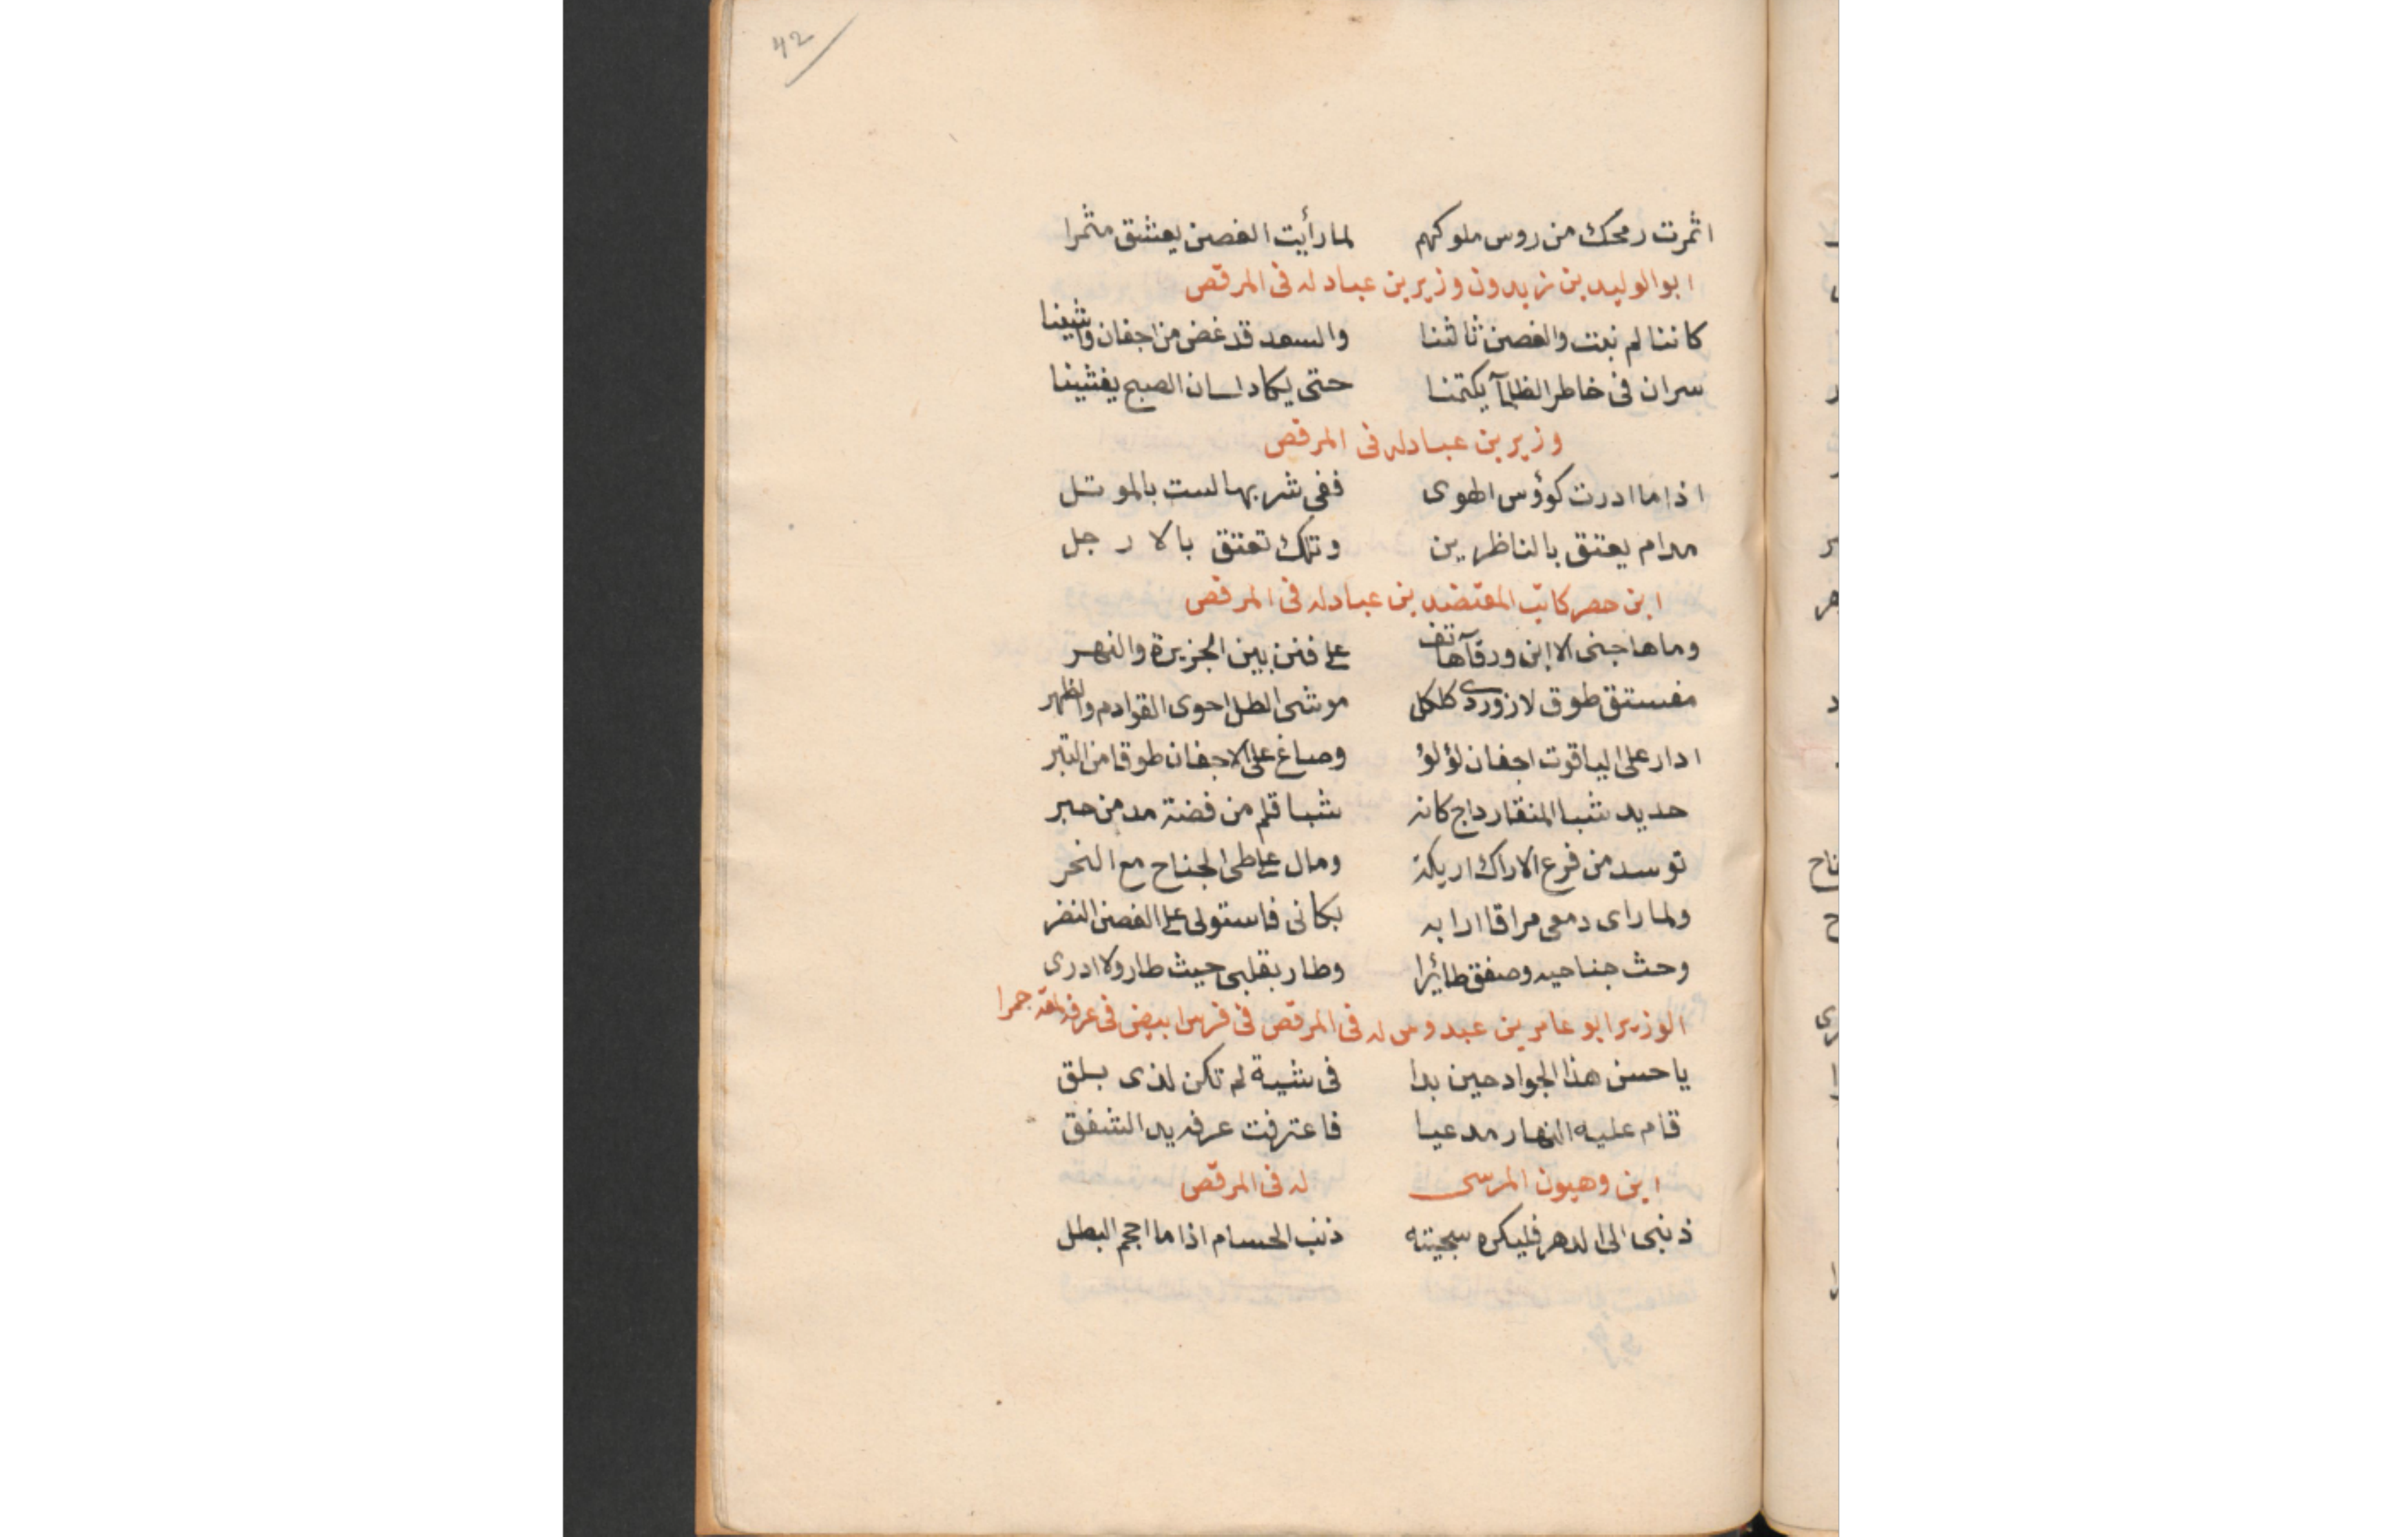 42
اثمرت رمحك من روس ملوكهم لما رأيت الغصن يعشق مثمرا
ابو الوليد بن زيدون وزير بن عباد له فى المرقص
كاننا لم نبت والغصن ثالثنا والسعد قد غض من اجفان واشينا
سران فى خاطر الظلمآ يكتمنا حتى يكاد لسان الصبح يفشينا
وزير بن عباد له فى المرقص
اذا ما ادرت كوؤس الهوى ففى شربها لست بالموتل
مدام يعتق بالناظرين وتلك تعتق بالارجل
ابن حصر كاتب المعتضد بن عباد له فى المرقص
وما هاجنى الا ابن ورقآ هاتف على فنن بين الجزيرة والنهر
مفستق طوق لازوردى كلكل موشى الطل احوى القوادم والظهر
ادار على الياقوت اجفان لؤلؤ وصاغ على الاجفان طوقا من التبر
حديد شبا المنقار داج كانه شبا قلم من فضة مد من حبر
توسد من فرع الاراك اريكة ومال على طى الجناح مع النحر
ولما راى دمعى مراقا ارابه بكانى فاستولى على الغصن النضر
وحث جناحيه وصفق طائرا وطار بقلبى حيث طار ولا ادرى
الوزير ابو عامر بن عبدوس له فى المرقص فى فرس ابيض فى عرفه حمرا
يا حسن هذا الجواد حين بدا فى شية لم تكن لذى بلق
قام عليه النهار مدعيا فاعترفت عرفه يد الشفق
ابن وهبون المرسى له فى المرقص
ذنبى الى الدهر فليكره سجيته ذنب الحسام اذا ما احجم البطل